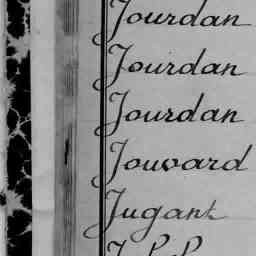 Jourdan
Jourdan
Jourdan
Jouvard
Jugant